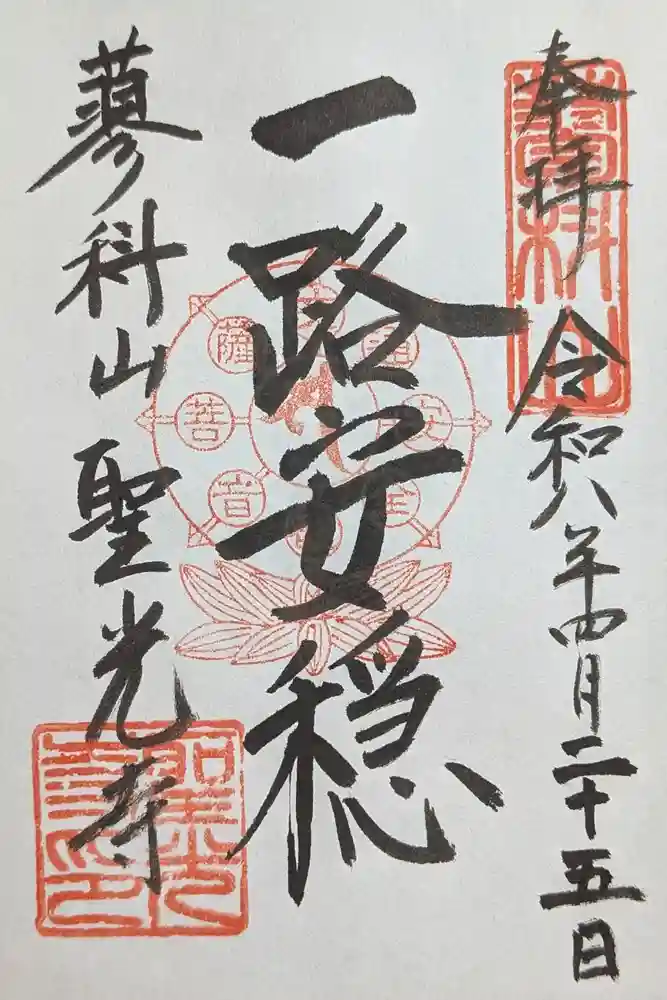 奉拝
令和八年四月二十五日
一路安穏
蓼科山 聖光寺